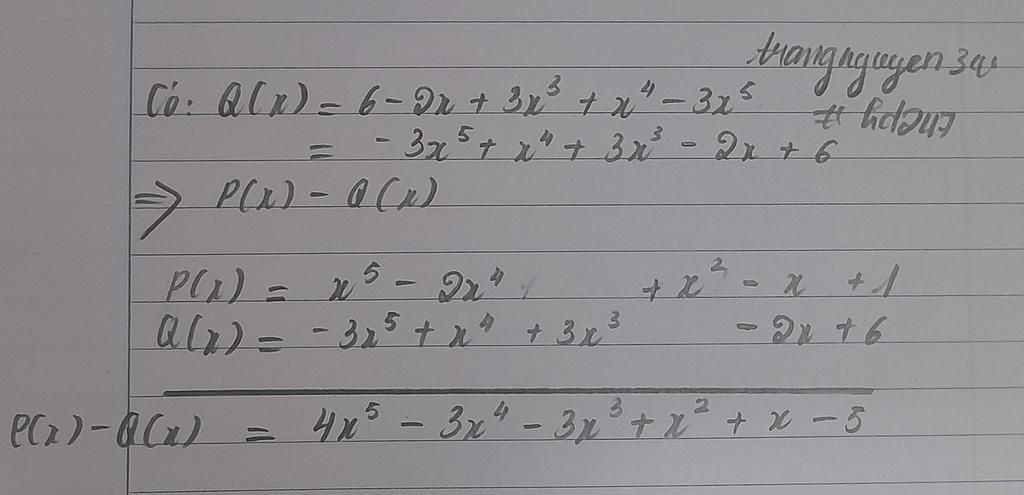 trangnguyen3a
#hd247
Có: Q(x) = 6 - 2x + 3x³ + x⁴ - 3x⁵
= - 3x⁵ + x⁴ + 3x³ - 2x + 6
⇒ P(x) - Q(x)
P(x) = x⁵ - 2x⁴ + x² - x + 1
Q(x) = - 3x⁵ + x⁴ + 3x³ - 2x + 6
P(x) - Q(x) = 4x⁵ - 3x⁴ - 3x³ + x² + x - 5